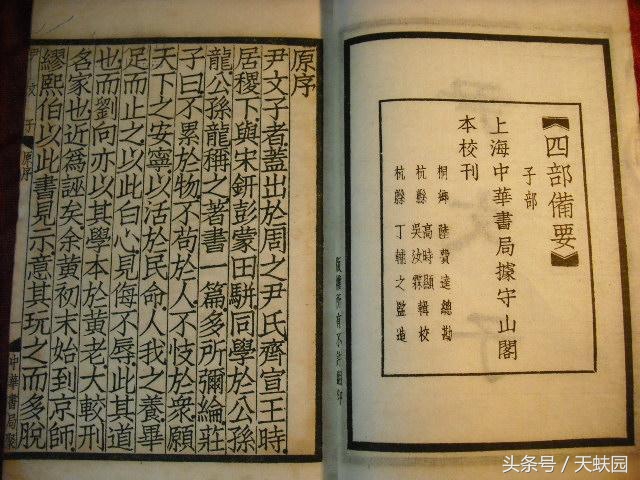 【四部備要】
子部
上海中華書局據守山閣
本校刊
桐鄉 陸費逵 總勘
杭縣 高時顯 吳汝霖 輯校
杭縣 丁輔之 監造
版權所有不許翻印
原序
尹文子者蓋出於周之尹氏齊宣王時
居稷下與宋鈃彭蒙田駢同學於公孫
龍公孫龍稱之著書一篇多所彌綸莊
子曰不累於物不苟於人不忮於衆願
天下之安寧以活於民命人我之養畢
足而止之以此白心見侮不辱此其道
也而劉向亦以其學本於黃老大較刑
名家也近為誣矣余黃初末始到京師
繆熙伯以此書見示意其玩之而多脫
尹文子 原序 一 中華書局聚
头条号 / 天蚨园